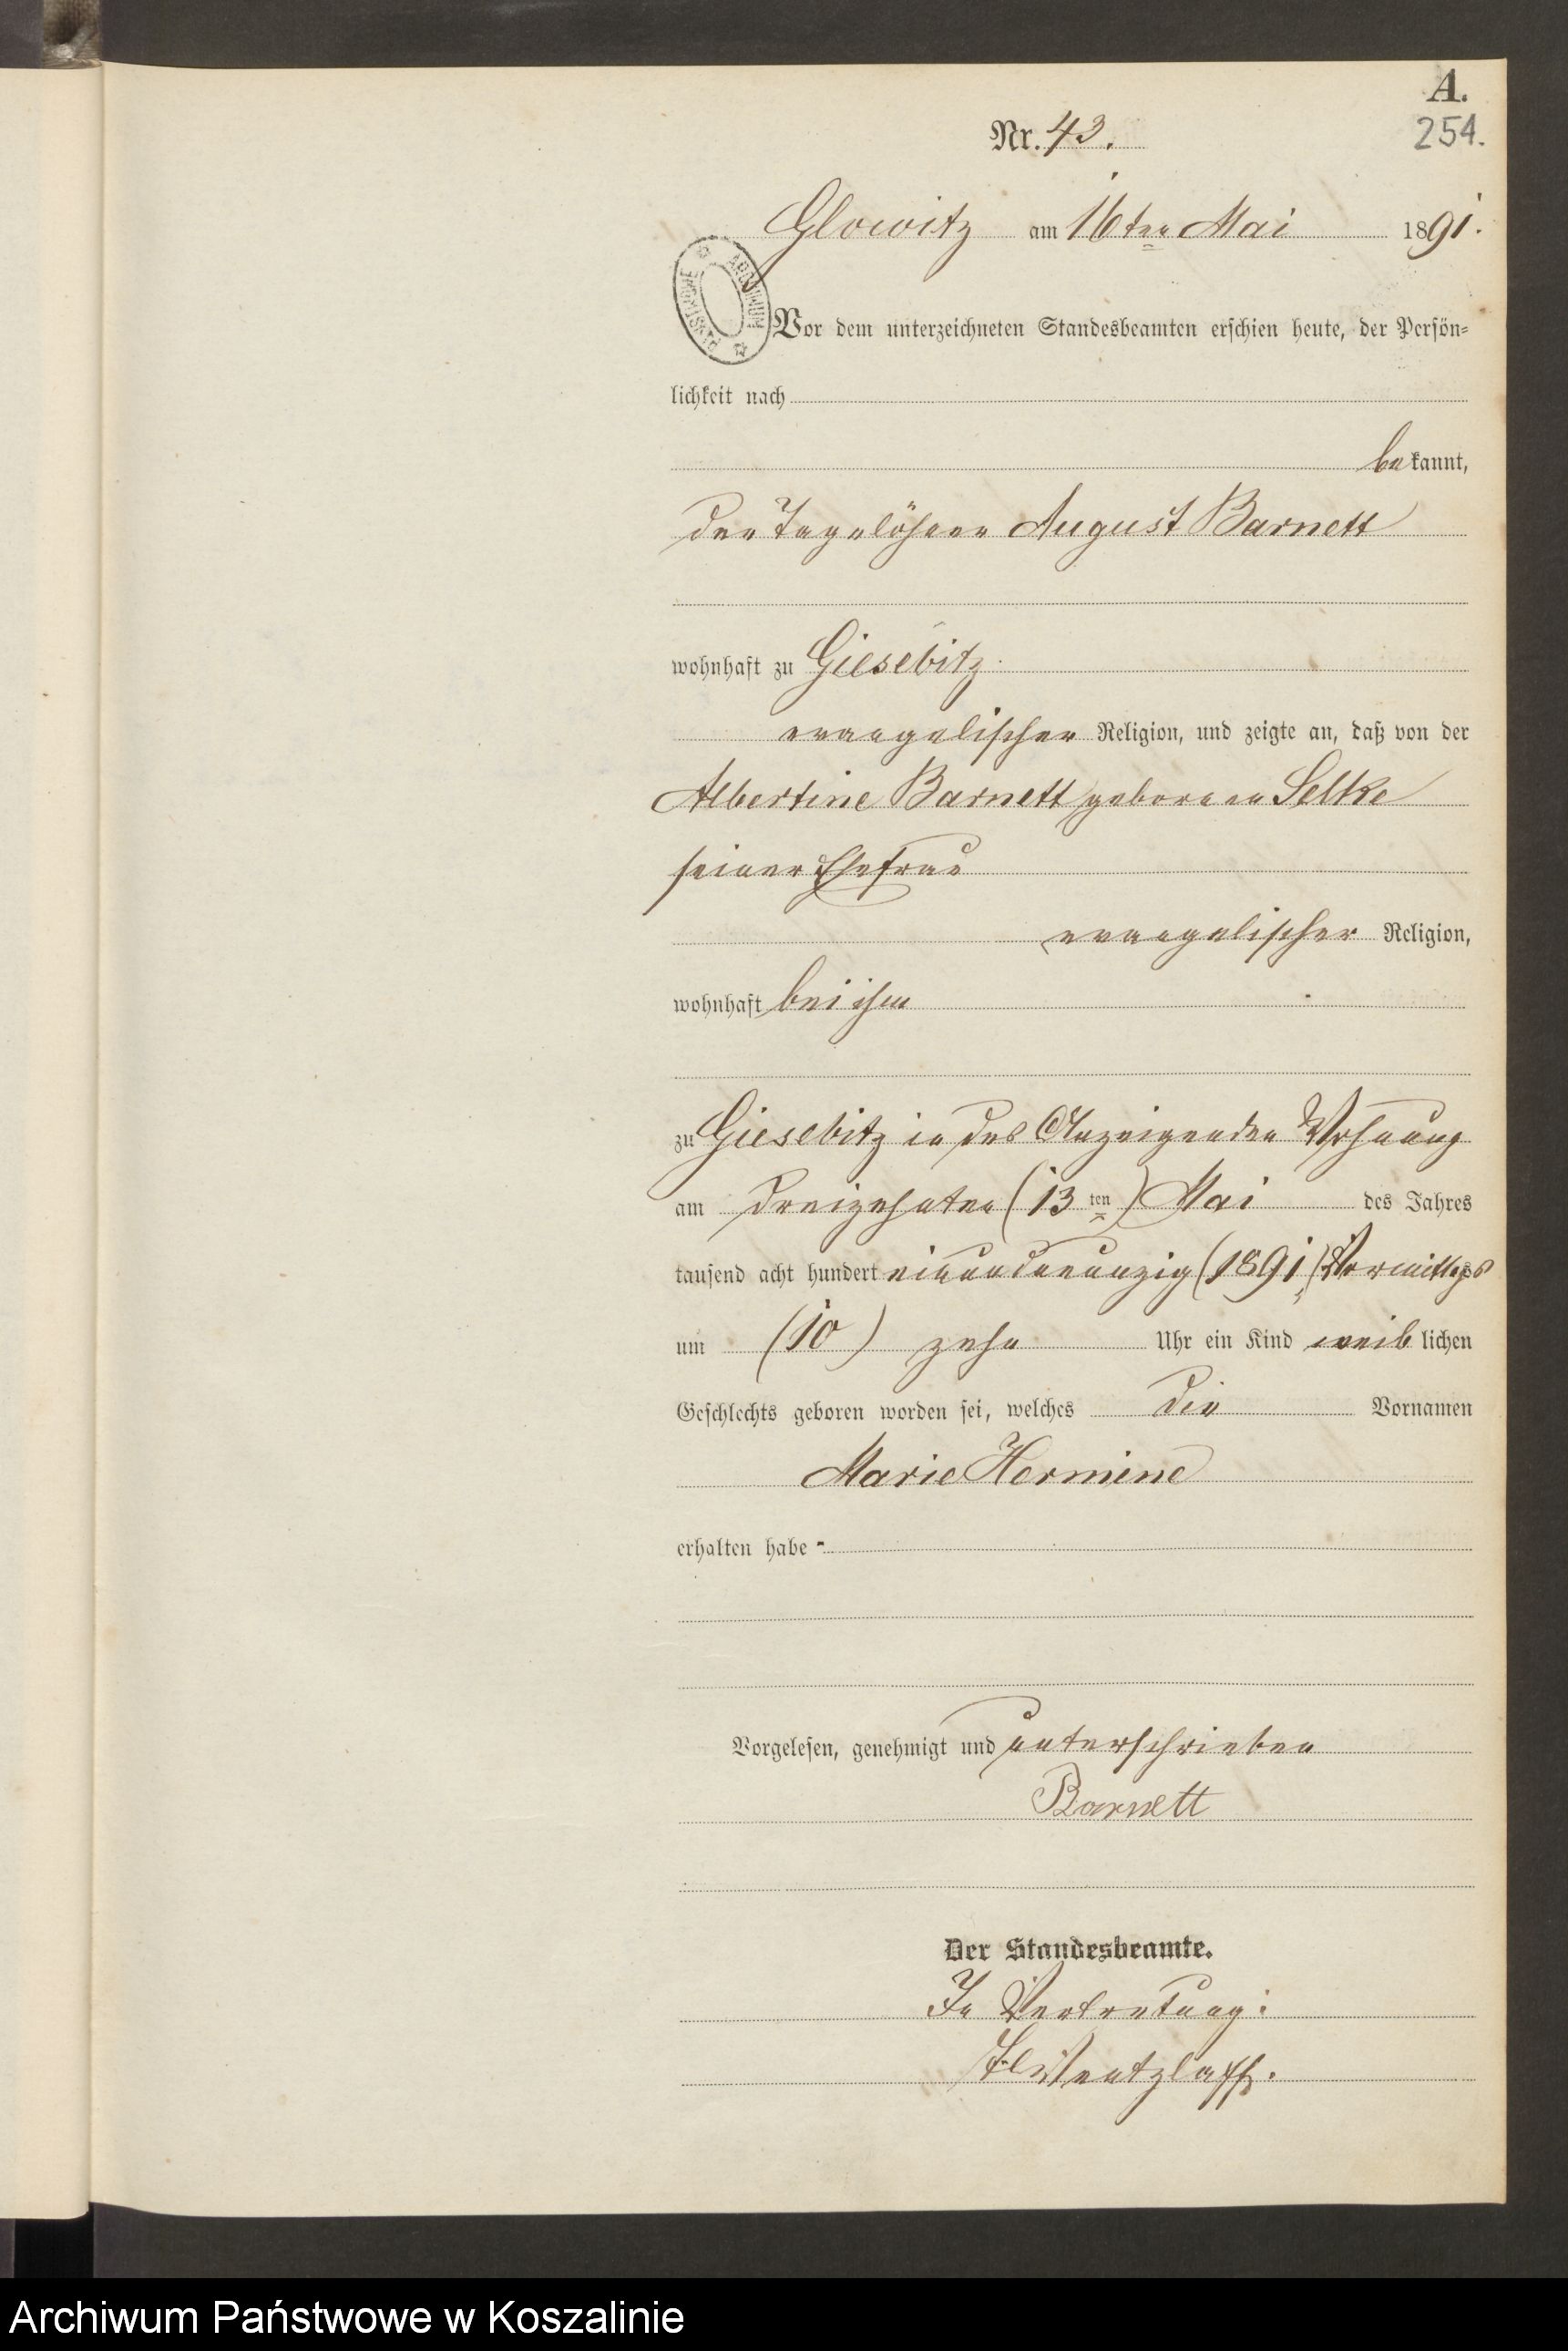 A.
254.
Nr. 43.
Glowitz am 16ten Mai 1891.
ARCHIWUM PAŃSTWOWE
Vor dem unterzeichneten Standesbeamten erschien heute, der Persön-
lichkeit nach
bekannt,
der Tagelöhner August Barnett
wohnhaft zu Giesebitz
evangelischer Religion, und zeigte an, daß von der
Albertine Barnett geborenen Selke
seiner Ehefrau
evangelischer Religion,
wohnhaft bei ihm
zu Giesebitz in des Anzeigenden Wohnung
am dreizehnten (13ten) Mai des Jahres
tausend acht hundert einundneunzig (1891) Vormittags
um (10) zehn Uhr ein Kind weiblichen
Geschlechts geboren worden sei, welches die Vornamen
Marie Hermine
erhalten habe -
Vorgelesen, genehmigt und unterschrieben
Barnett
Der Standesbeamte.
In Vertretung:
Wentzlaff.
Archiwum Państwowe w Koszalinie